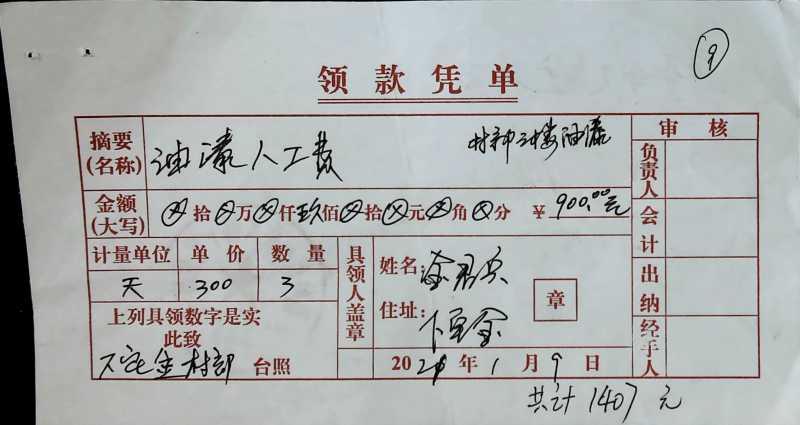 9
领款凭单
摘要(名称) 油漆人工费 村部三楼油漆
审核
负责人
金额(大写) ⊗拾⊗万⊗仟玖佰⊗拾⊗元⊗角⊗分 ¥900.00元
会计
计量单位 单价 数量
天 300 3
具领人盖章
姓名:
住址:
章
出纳
经手人
上列具领数字是实
此致
村部 台照
20 年 1 月 9 日
共计 1407 元